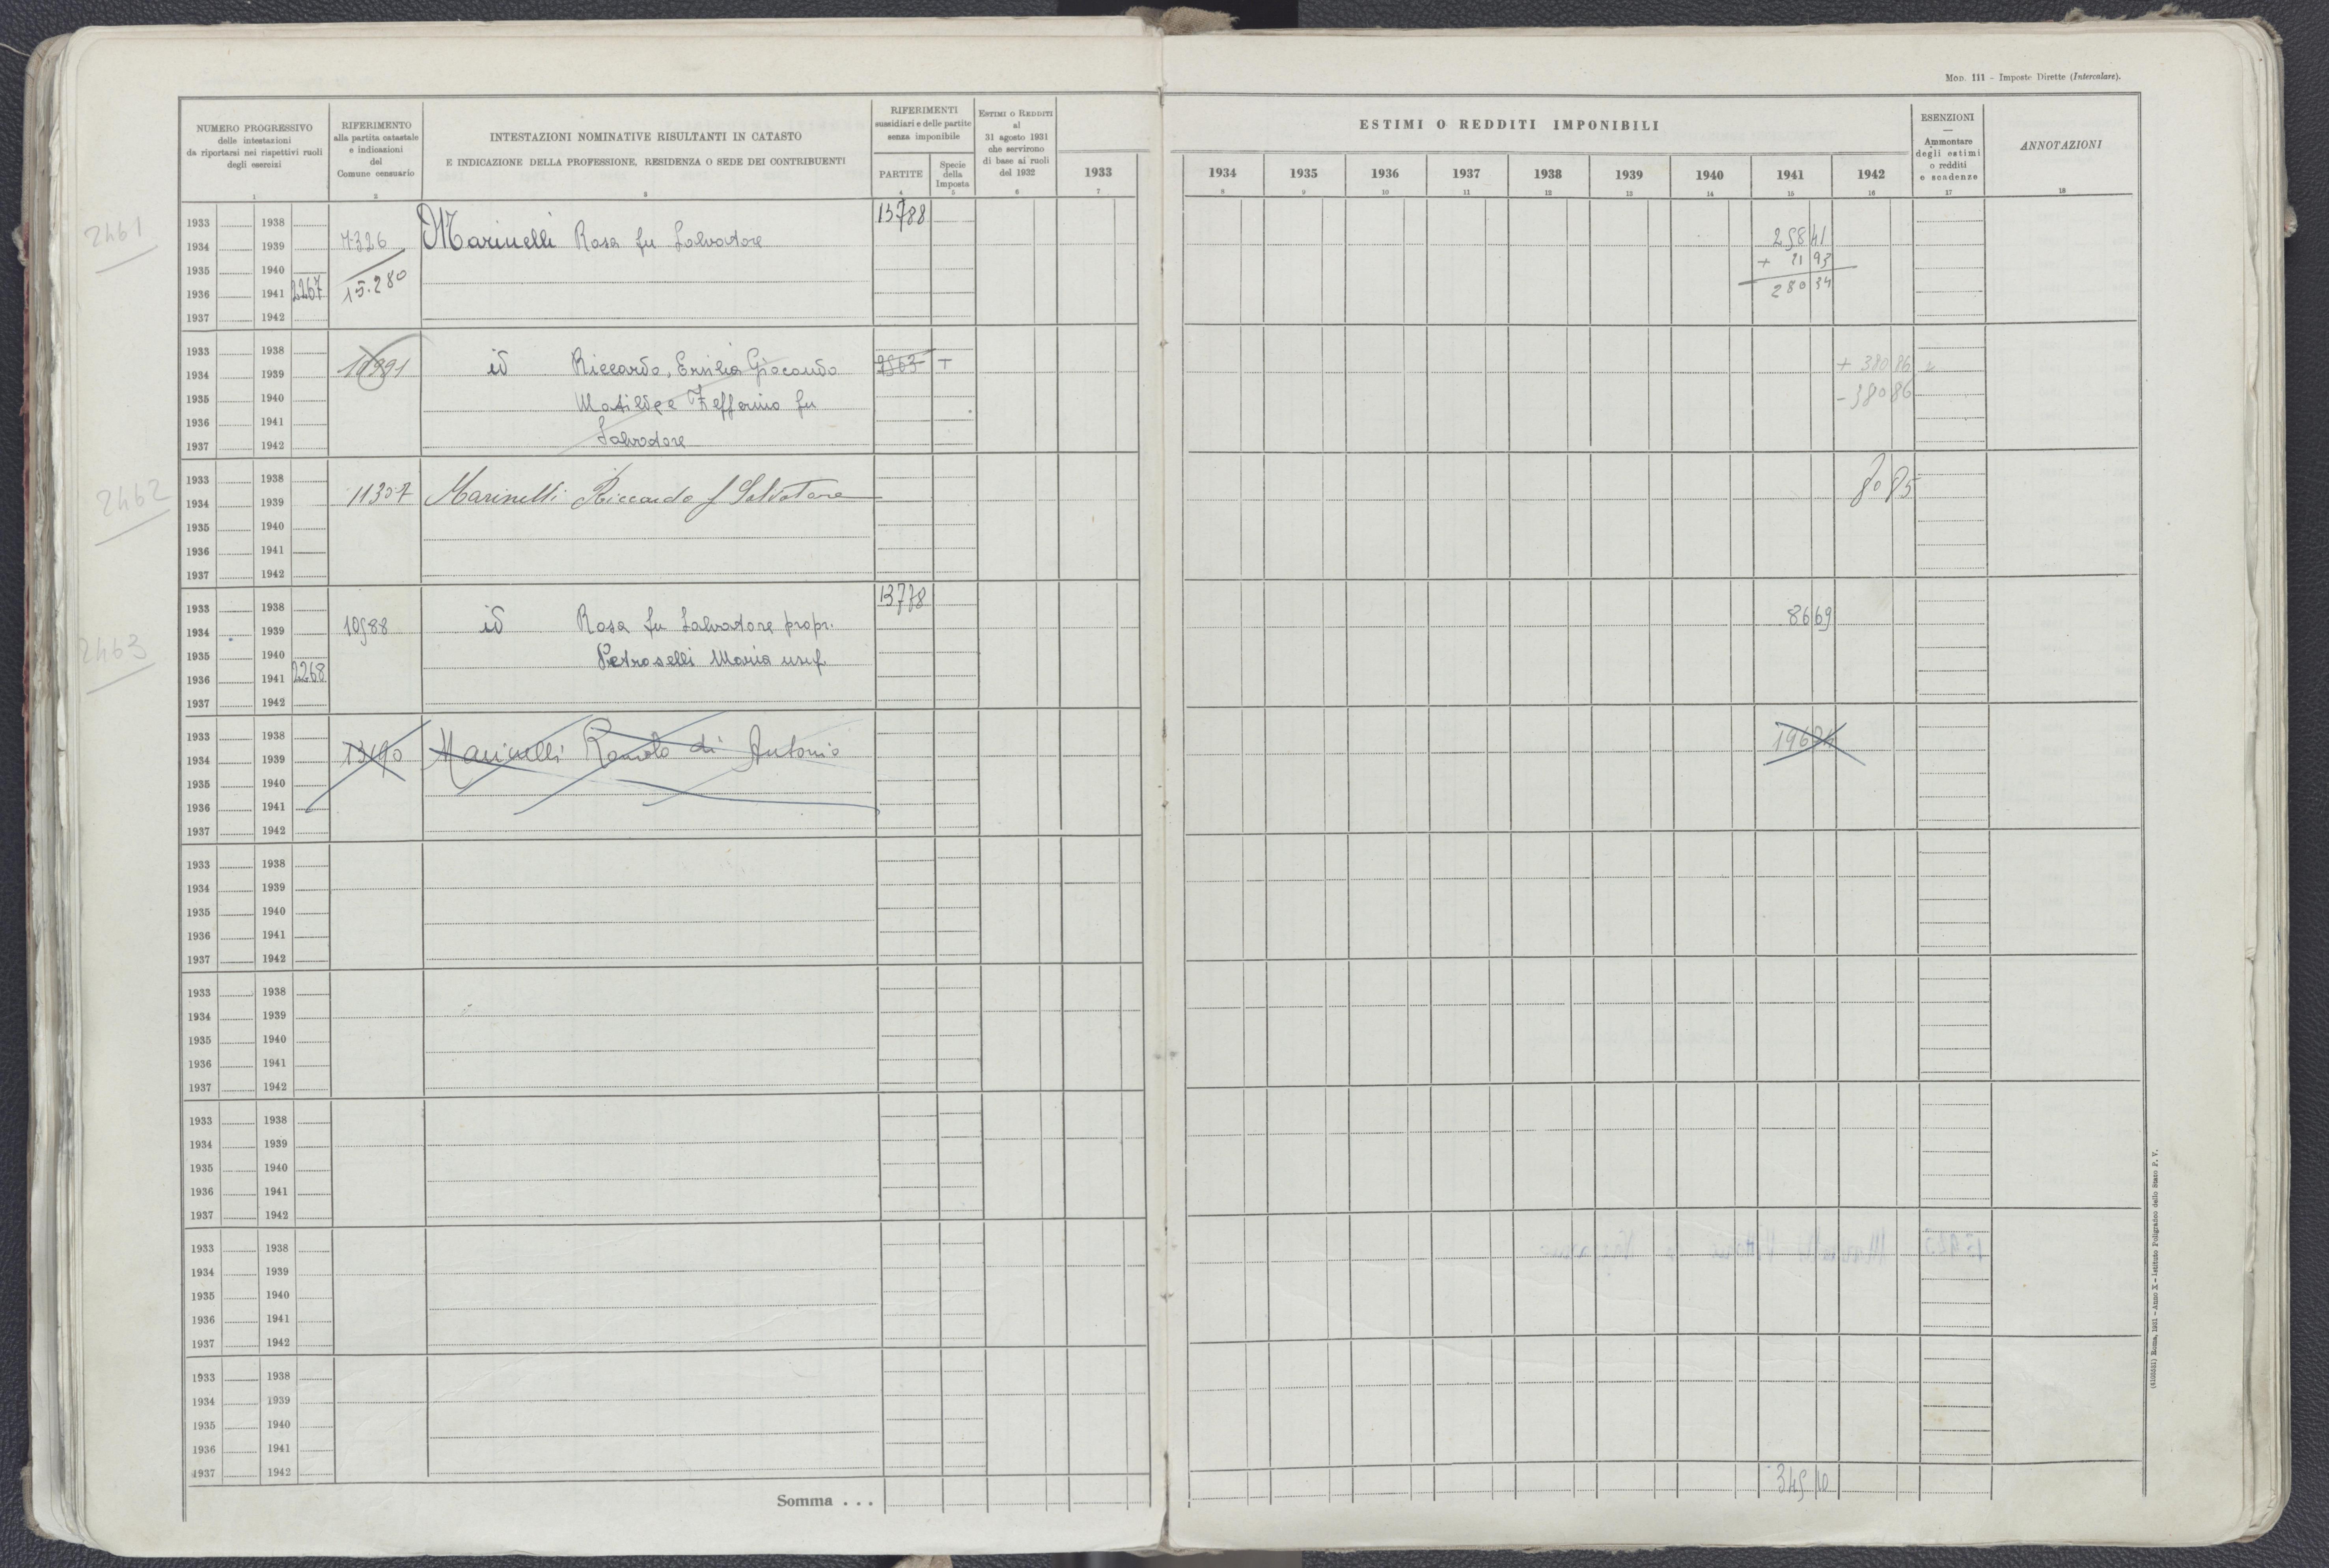 Mod. 111 - Imposte Dirette (Intercalare).
NUMERO PROGRESSIVO
delle intestazioni
da riportarsi nei rispettivi ruoli
degli esercizi
1
RIFERIMENTO
alla partita catastale
e indicazioni
del
Comune censuario
2
INTESTAZIONI NOMINATIVE RISULTANTI IN CATASTO
E INDICAZIONE DELLA PROFESSIONE, RESIDENZA O SEDE DEI CONTRIBUENTI
3
RIFERIMENTI
sussidiari e delle partite
senza imponibile
PARTITE
4
Specie
della
Imposta
5
Estimi o Redditi
al
31 agosto 1931
che servirono
di base ai ruoli
del 1932
6
1933
7
ESTIMI O REDDITI IMPONIBILI
1934 1935 1936 1937 1938 1939 1940 1941 1942
8 9 10 11 12 13 14 15 16
ESENZIONI
Ammontare
degli estimi
o redditi
e scadenze
17
ANNOTAZIONI
18
13788
2461
1933 1938
1934 1939 7326 Marinelli Rosa fu Salvatore 258 41
1935 1940 + 21 93
1936 1941 2267 15.280 280 34
1937 1942
1933 1938
1934 1939 id Riccardo, Ersilia Giocondo 2563 T + 380 86
1935 1940 Matilde e Zefferino fu - 380 86
1936 1941
1937 1942 Salvatore
2462
1933 1938
1934 1939 11307 Marinelli Riccardo f Salvatore 80 85
1935 1940
1936 1941
1937 1942
13778
2463
1933 1938
1934 1939 10588 id Rosa fu Salvatore propr. 86 69
1935 1940 Petroselli Maria usuf.
1936 1941 2268
1937 1942
1933 1938
1934 1939 13490 Marinelli Romolo di Antonio
1935 1940
1936 1941
1937 1942
1933 1938
1934 1939
1935 1940
1936 1941
1937 1942
1933 1938
1934 1939
1935 1940
1936 1941
1937 1942
1933 1938
1934 1939
1935 1940
1936 1941
1937 1942
1933 1938
1934 1939
1935 1940
1936 1941
1937 1942
1933 1938
1934 1939
1935 1940
1936 1941
1937 1942
Somma . . . 345 10
Roma, 1931 - Anno X - Istituto Poligrafico dello Stato P. V.